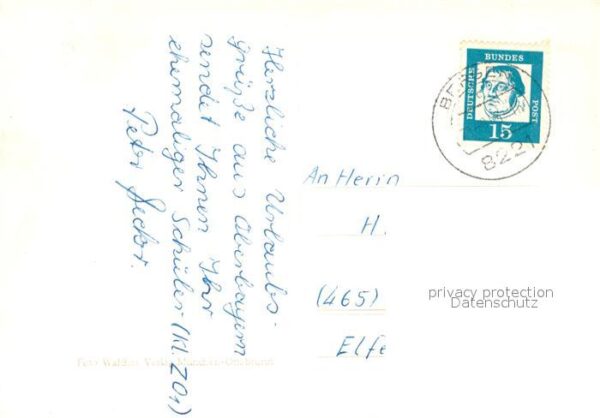 Herzliche Urlaubs-
grüße aus Oberbayern
sendet Ihnen Ihr
ehemaliger Schüler (Kl. Z01)
Peter
DEUTSCHE
BUNDES
POST
15
8221
An Herrn
H.
(465)
Elfe
privacy protection
Datenschutz
Foto Verlag München